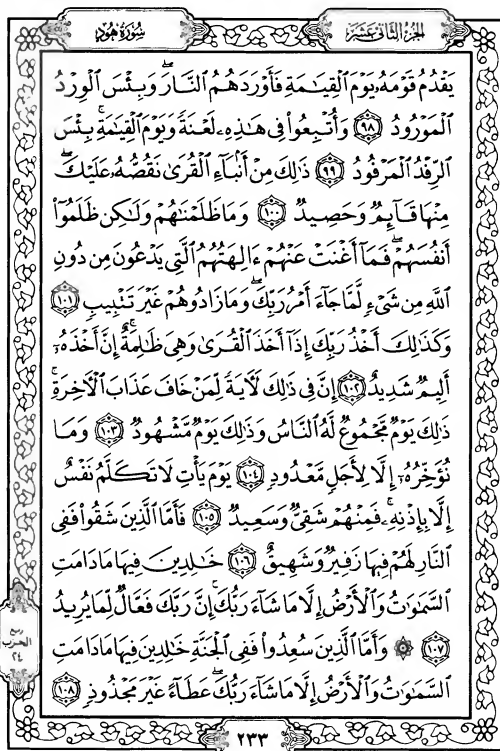 سُورَةُ هُودٍ
الجُزْءُ الثَّانِى عَشَرَ
يَقْدُمُ قَوْمَهُۥ يَوْمَ ٱلْقِيَٰمَةِ فَأَوْرَدَهُمُ ٱلنَّارَ ۖ وَبِئْسَ ٱلْوِرْدُ
ٱلْمَوْرُودُ ٩٨ وَأُتْبِعُوا۟ فِى هَٰذِهِۦ لَعْنَةً وَيَوْمَ ٱلْقِيَٰمَةِ ۚ بِئْسَ
ٱلرِّفْدُ ٱلْمَرْفُودُ ٩٩ ذَٰلِكَ مِنْ أَنۢبَآءِ ٱلْقُرَىٰ نَقُصُّهُۥ عَلَيْكَ ۖ
مِنْهَا قَآئِمٌ وَحَصِيدٌ ١٠٠ وَمَا ظَلَمْنَٰهُمْ وَلَٰكِن ظَلَمُوٓا۟
أَنفُسَهُمْ ۖ فَمَآ أَغْنَتْ عَنْهُمْ ءَالِهَتُهُمُ ٱلَّتِى يَدْعُونَ مِن دُونِ
ٱللَّهِ مِن شَىْءٍ لَّمَّا جَآءَ أَمْرُ رَبِّكَ ۖ وَمَا زَادُوهُمْ غَيْرَ تَتْبِيبٍ ١٠١
وَكَذَٰلِكَ أَخْذُ رَبِّكَ إِذَآ أَخَذَ ٱلْقُرَىٰ وَهِىَ ظَٰلِمَةٌ ۚ إِنَّ أَخْذَهُۥٓ
أَلِيمٌ شَدِيدٌ ١٠٢ إِنَّ فِى ذَٰلِكَ لَءَايَةً لِّمَنْ خَافَ عَذَابَ ٱلْءَاخِرَةِ ۚ
ذَٰلِكَ يَوْمٌ مَّجْمُوعٌ لَّهُ ٱلنَّاسُ وَذَٰلِكَ يَوْمٌ مَّشْهُودٌ ١٠٣ وَمَا
نُؤَخِّرُهُۥٓ إِلَّا لِأَجَلٍ مَّعْدُودٍ ١٠٤ يَوْمَ يَأْتِ لَا تَكَلَّمُ نَفْسٌ
إِلَّا بِإِذْنِهِۦ ۚ فَمِنْهُمْ شَقِىٌّ وَسَعِيدٌ ١٠٥ فَأَمَّا ٱلَّذِينَ شَقُوا۟ فَفِى
ٱلنَّارِ لَهُمْ فِيهَا زَفِيرٌ وَشَهِيقٌ ١٠٦ خَٰلِدِينَ فِيهَا مَا دَامَتِ
ٱلسَّمَٰوَٰتُ وَٱلْأَرْضُ إِلَّا مَا شَآءَ رَبُّكَ ۚ إِنَّ رَبَّكَ فَعَّالٌ لِّمَا يُرِيدُ
١٠٧ ۞ وَأَمَّا ٱلَّذِينَ سُعِدُوا۟ فَفِى ٱلْجَنَّةِ خَٰلِدِينَ فِيهَا مَا دَامَتِ
ٱلسَّمَٰوَٰتُ وَٱلْأَرْضُ إِلَّا مَا شَآءَ رَبُّكَ ۖ عَطَآءً غَيْرَ مَجْذُوذٍ ١٠٨
ربع
الحزب
٢٤
٢٣٣